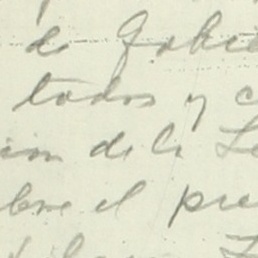 de Gabi
todos y c
ion de la Le
bre el pre